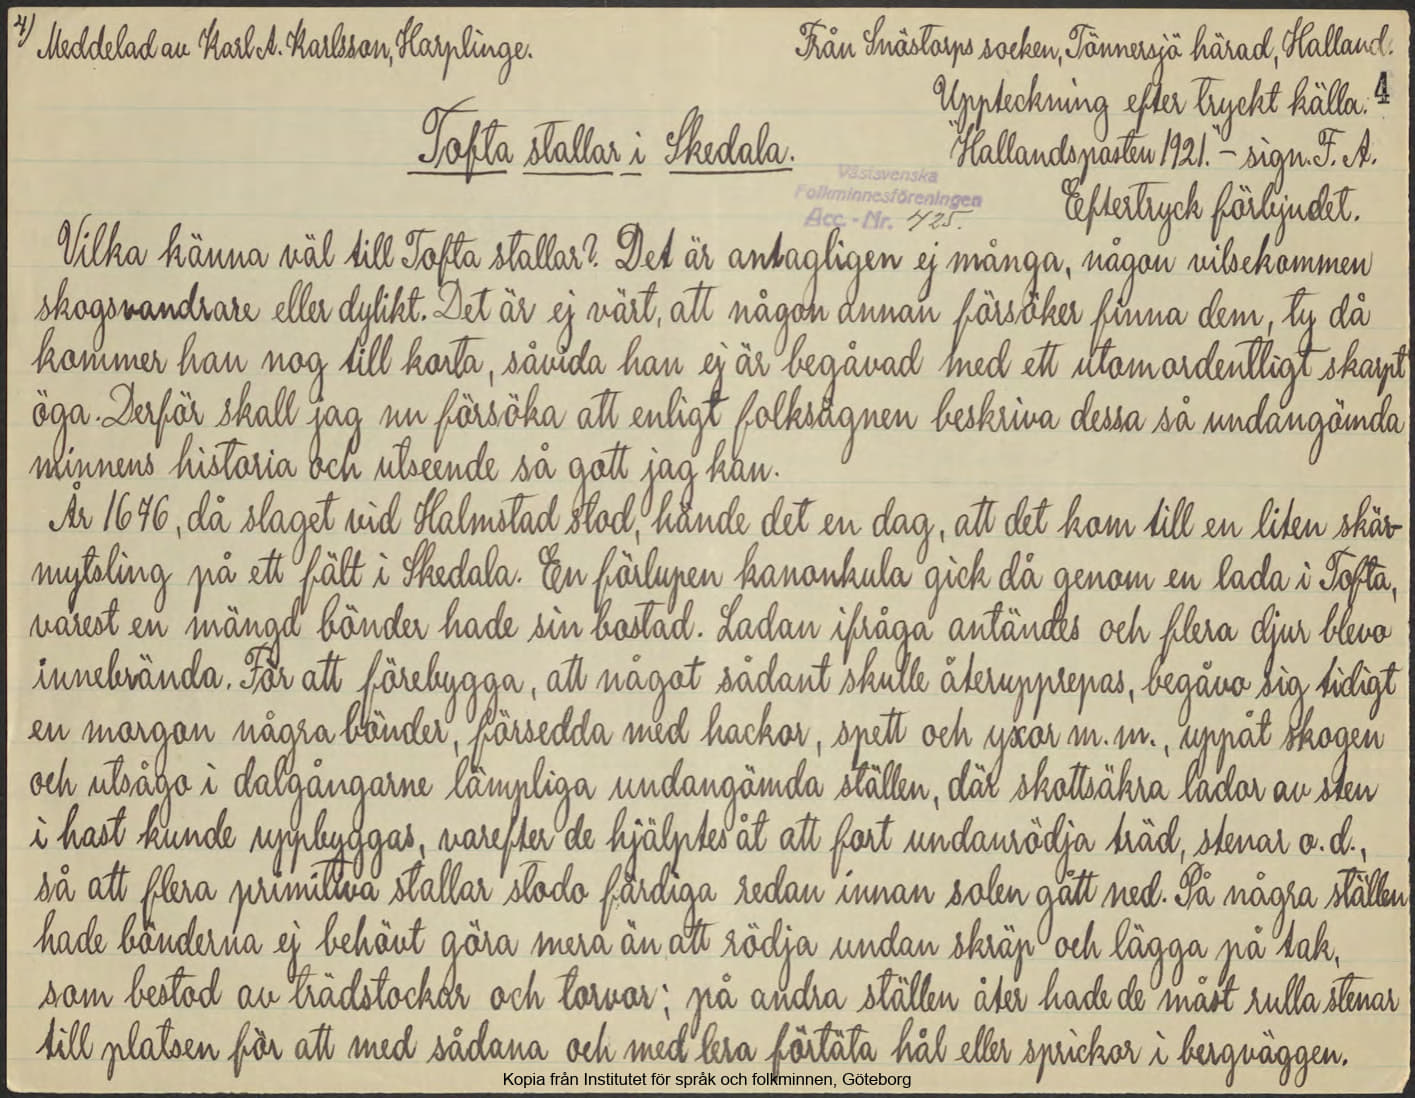 4)
Meddelad av Karl A. Karlsson, Harplinge.
Från Snöstorps socken, Tönnersjö härad, Halland.
Uppteckning efter tryckt källa. 4
Tofta stallar i Skedala.
"Hallandsposten 1921." – sign. F. A.
Västsvenska
Folkminnesföreningen
Acc.-Nr. 425.
Eftertryck förbjudet.
Vilka känna väl till Tofta stallar? Det är antagligen ej många, någon vilsekommen
skogsvandrare eller dylikt. Det är ej värt, att någon annan försöker finna dem, ty då
kommer han nog till korta, såvida han ej är begåvad med ett utomordentligt skarpt
öga. Derför skall jag nu försöka att enligt folksägnen beskriva dessa så undangömda
minnens historia och utseende så gott jag kan.
År 1676, då slaget vid Halmstad stod, hände det en dag, att det kom till en liten skär-
mytsling på ett fält i Skedala. En förlupen kanonkula gick då genom en lada i Tofta,
varest en mängd bönder hade sin bostad. Ladan ifråga antändes och flera djur blevo
innebrända. För att förebygga, att något sådant skulle återupprepas, begåvo sig tidigt
en morgon några bönder, försedda med hackor, spett och yxor m.m., uppåt skogen
och utsågo i dalgångarne lämpliga undangömda ställen, där skottsäkra lador av sten
i hast kunde uppbyggas, varefter de hjälptes åt att fort undanrödja träd, stenar o.d.,
så att flera primitiva stallar stodo färdiga redan innan solen gått ned. På några ställen
hade bönderna ej behövt göra mera än att rödja undan skräp och lägga på tak,
som bestod av trädstockar och torvor; på andra ställen åter hade de måst rulla stenar
till platsen för att med sådana och med lera förtäta hål eller sprickor i bergväggen.
Kopia från Institutet för språk och folkminnen, Göteborg